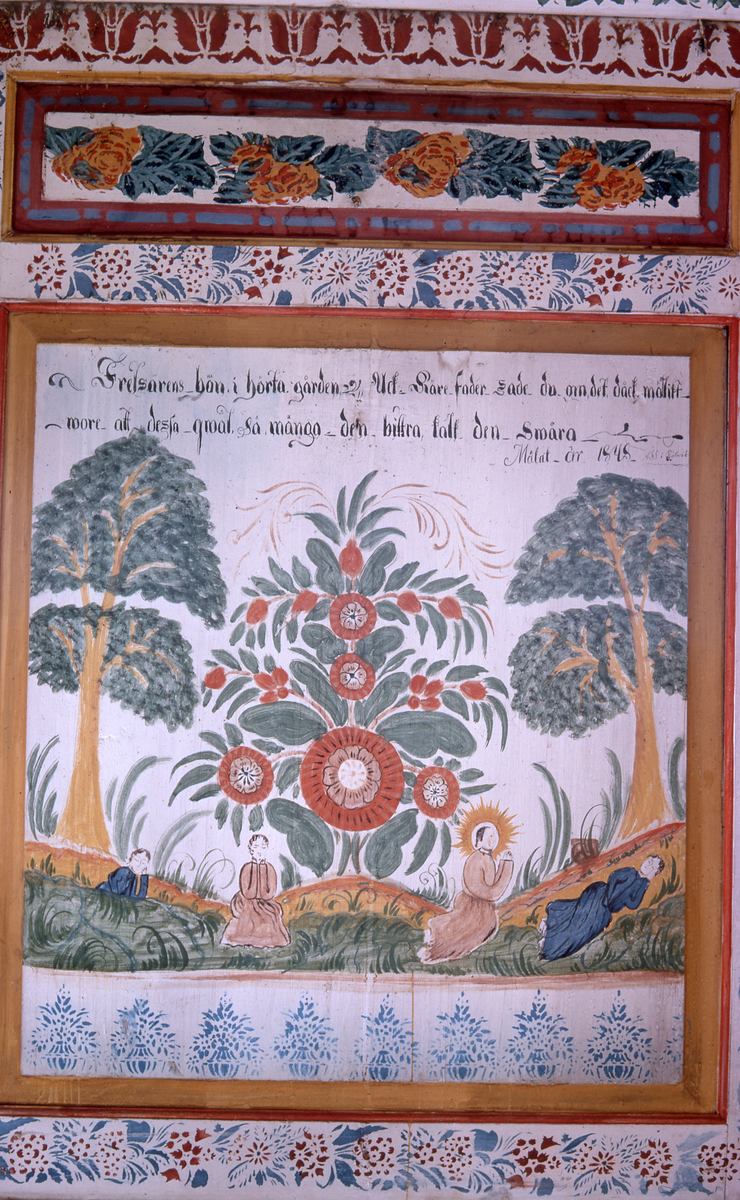 Frelsarens bön i hörta gården Ack Käre fader sade du om det dåck möhlit
wore att dessa qwal så många den bittra kalk den swåra
Målat år 1848